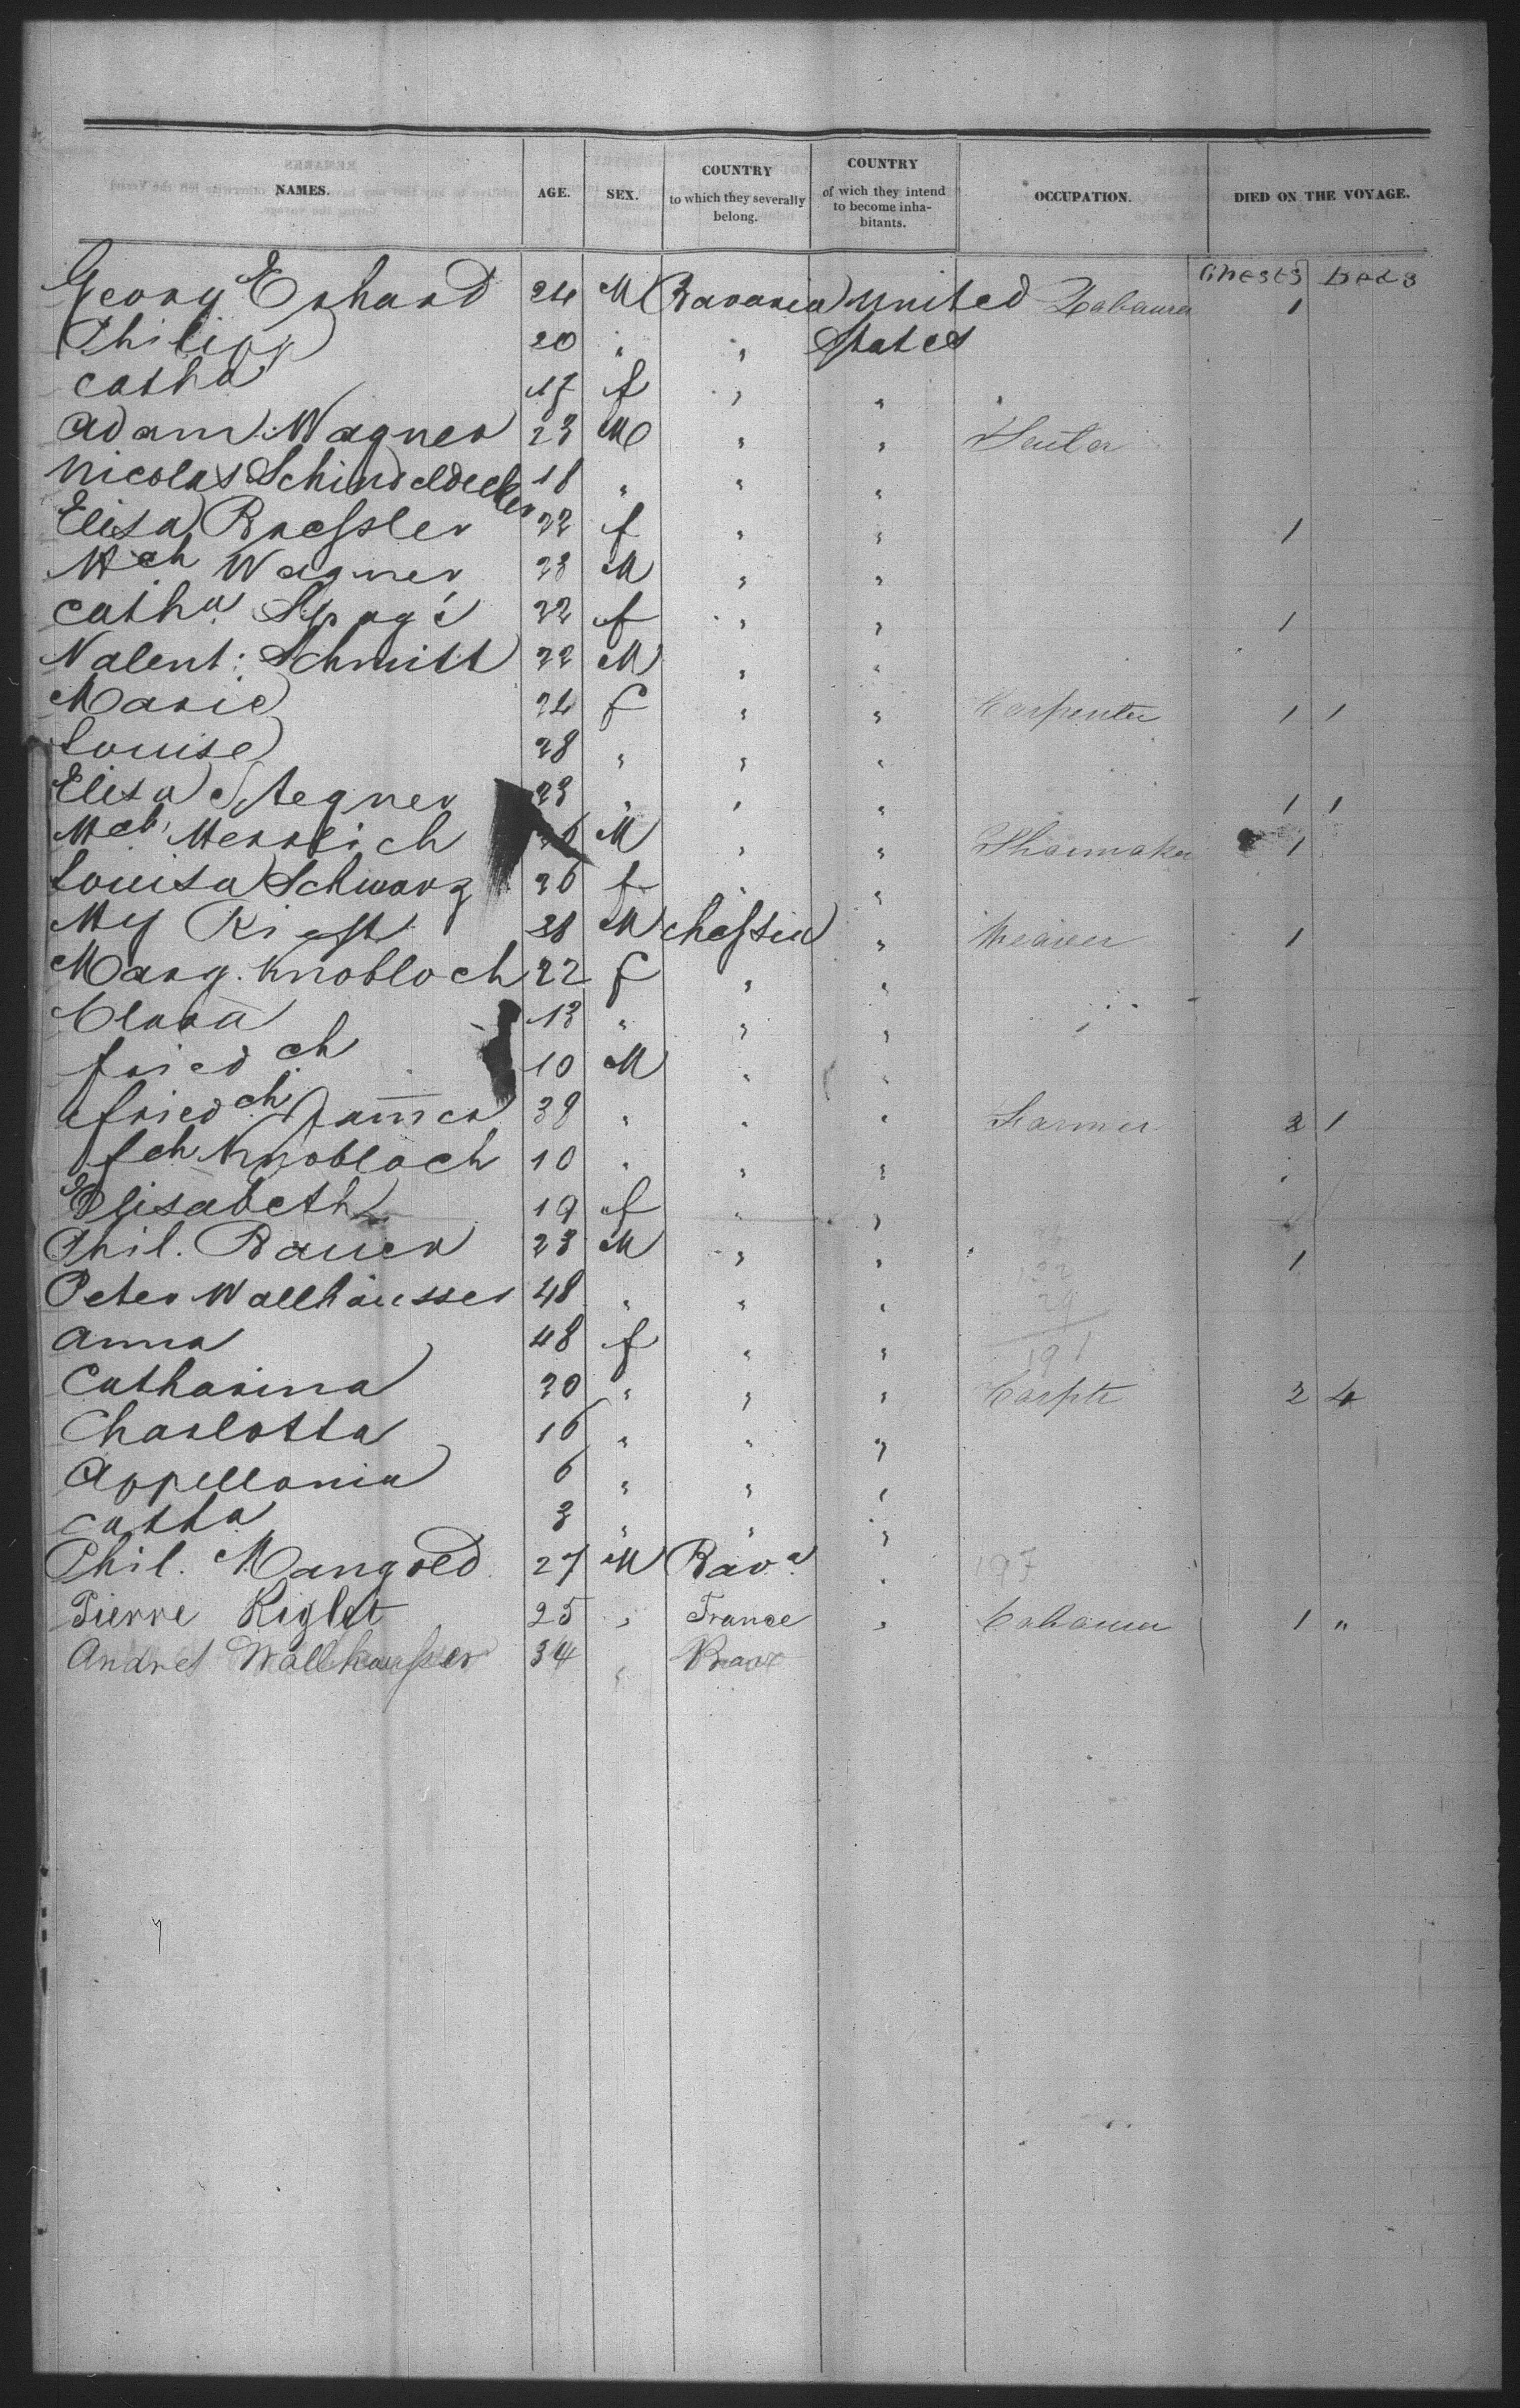 NAMES. AGE. SEX. COUNTRY to which they severally belong. COUNTRY of wich they intend to become inhabitants. OCCUPATION. DIED ON THE VOYAGE.
Chests Beds
Georg Erhard 24 M Bavaria United Labaurer 1
Philipp 20 " " States
Catha 17 f " "
Adam Wagner 23 M " "
Nicolas Schindeldecker 18 " " "
Elisa Roessler 22 f " " 1
Mch Wagner 23 M " "
Catha 22 f " " 1
Valent: Schmitt 22 M " "
Marie 24 f " " Carpenter 1 1
Louise 28 " " "
Elisa Stegner 23 " " " 1 1
Mch M " " Shoemaker 1
Louisa Schwarz 26 f " "
M Hessen " Weaver 1
Marg. Knobloch 22 f " "
Clara 13 " " "
friedch 10 M " "
friedch 39 " " " Farmer 2 1
fch Knobloch 10 " " "
Elisabeth 19 f " "
Phil. Bauer 23 M " " 1
Peter Wallhäusser 48 " " "
Anna 48 f " "
Catharina 20 " " " Carptr 2 4
191
Charlotta 16 " " "
Appellonia 6 " " "
Catha 3 " " "
Phil. Mangold 27 M Bava " 197
Pierre Riglet 25 " France " Labaurer 1 "
Andres Wallhausser 34 "